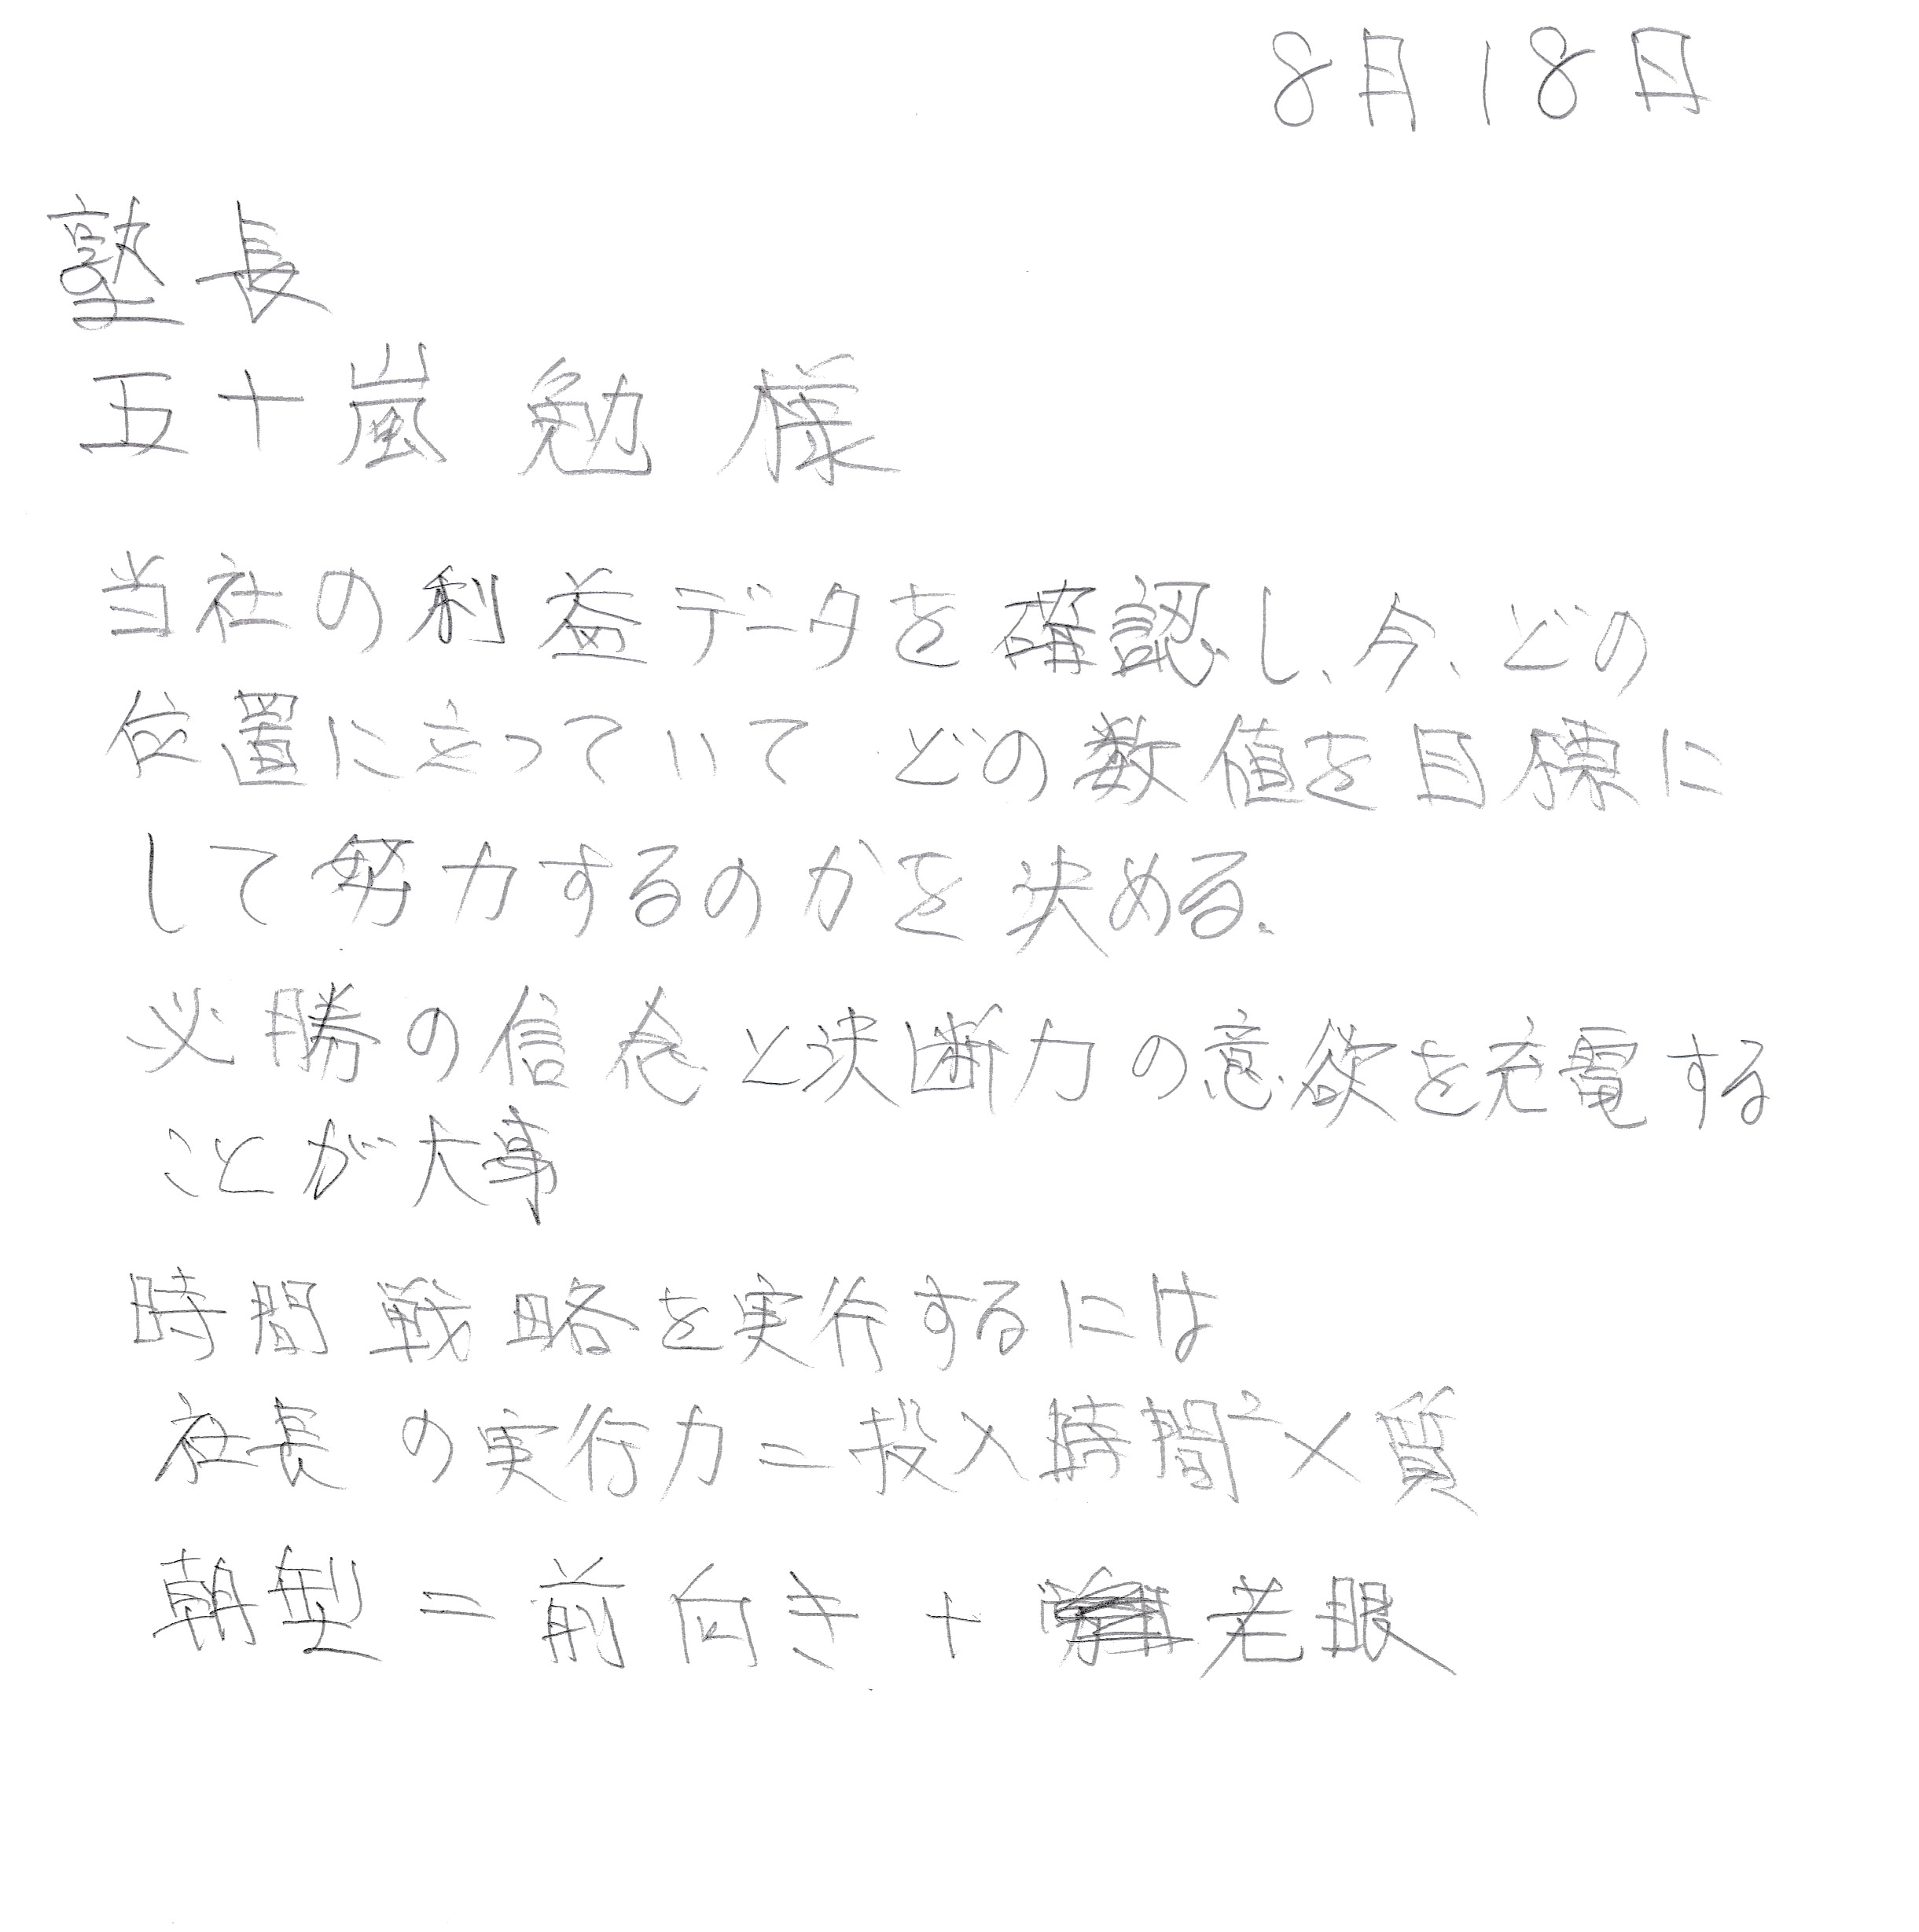 8月18日
塾長
五十嵐 勉 様
当社の利益データを確認し、今、どの
位置に立っていて どの数値を目標に
して努力するのかを決める。
必勝の信念と決断力の意欲を充電する
ことが大事
時間戦略を実行するには
社長の実行力=投入時間²×質
朝型=前向き+老眼